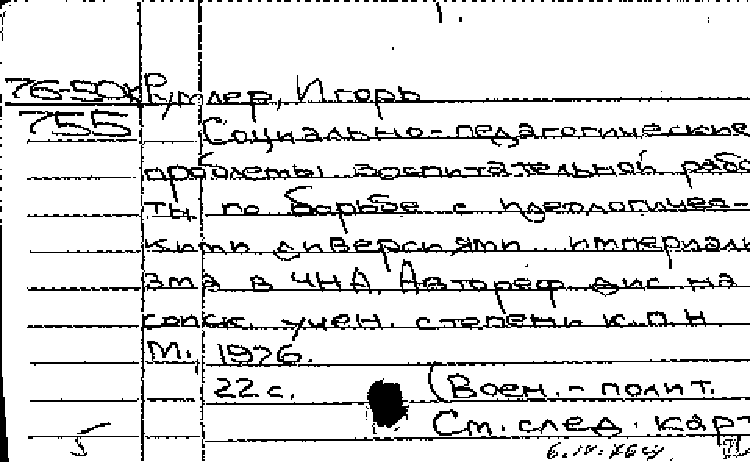 76-50к Румлер, Игорь
755 Социально-педагогические
проблемы воспитательной рабо
ты по борьбе с идеологичес-
кими диверсиями империали
зма в ЧНА. Автореф дис на
соиск. учен. степени к.п.н
М., 1976.
22 с. (Воен.-полит.
См. след. карт
5